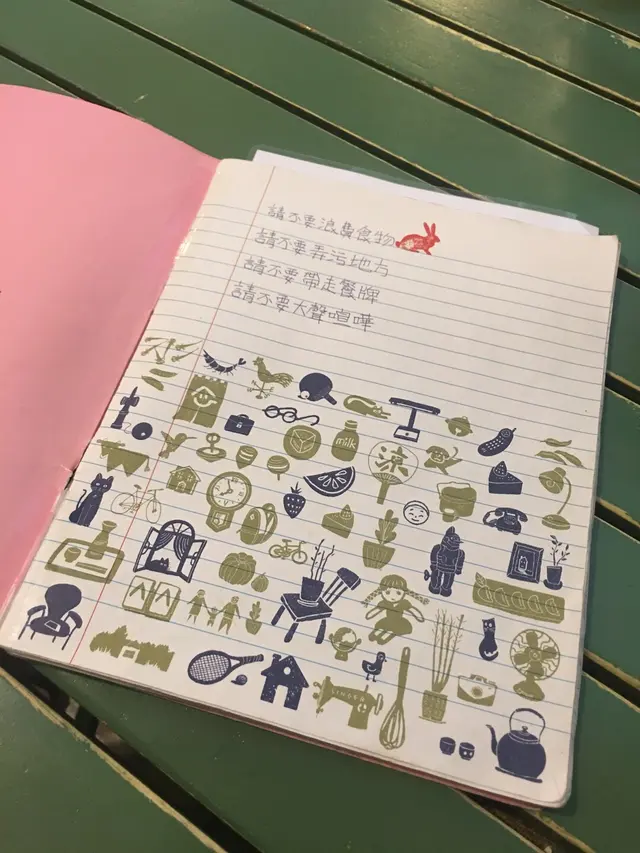 請不要浪費食物
請不要弄污地方
請不要帶走餐牌
請不要大聲喧嘩
milk
涼